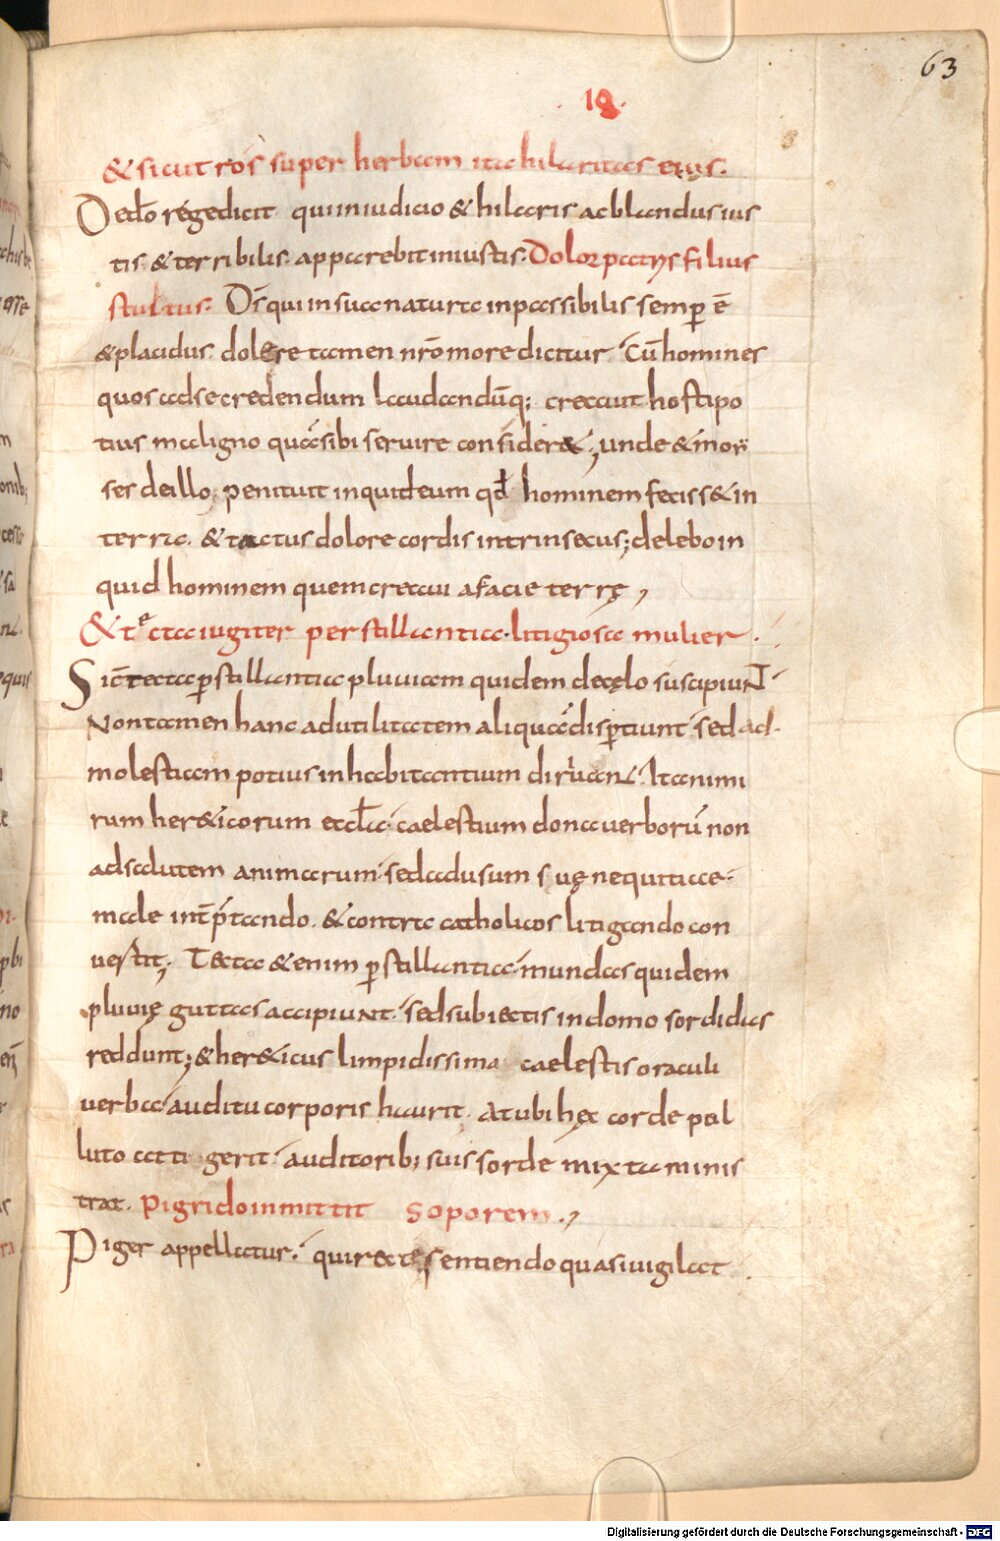 63
19.
& sicut ros super herbam ita hilaritas eius.
De dõ rege dicit qui in iudicio & hilaris ac blandus ius
tis & terribilis apparebit iniustis. Dolor patris filius
stultus. Dš qui in sua natura inpassibilis semp ẽ
& placidus dolere tamen nr̃o more dicitur Cũ homines
quos ad se credendum laudandũq; creauit hosti po
tius maligno quasi sibi seruire consider&, unde & moy
ses de illo, penituit inquid eum qđ hominem feciss& in
terra. & tactus dolore cordis intrinsecus; delebo in
quid hominem quem creaui a facie terrę,
& tecta iugiter perstillantia litigiosa mulier.
Sic tecta pstillantia pluuiam quidem de cęlo suscipiunt
Non tamen hanc ad utilitatem aliquā dispertiunt sed ad
molestiam potius inhabitantium diriuant Ita nimi
rum her&icorum eccła caelestium dona uerborũ non
ad salutem animarum sed ad usum suę nequitiae
male int̃ptando. & contra catholicos litigando con
uertit, Tecta & enim pstillantia mundas quidem
pluuię guttas accipiunt sed subiectis in domo sordidas
reddunt; & her&icus limpidissima caelestis oraculi
uerba auditu corporis haurit. At ubi hęc corde pol
luto attigerit auditorib; suis sorde mixta minis
trat. Pigrido inmittit soporem.,
Piger appellatur. qui recte sentiendo quasi uigilat
Digitalisierung gefördert durch die Deutsche Forschungsgemeinschaft - DFG